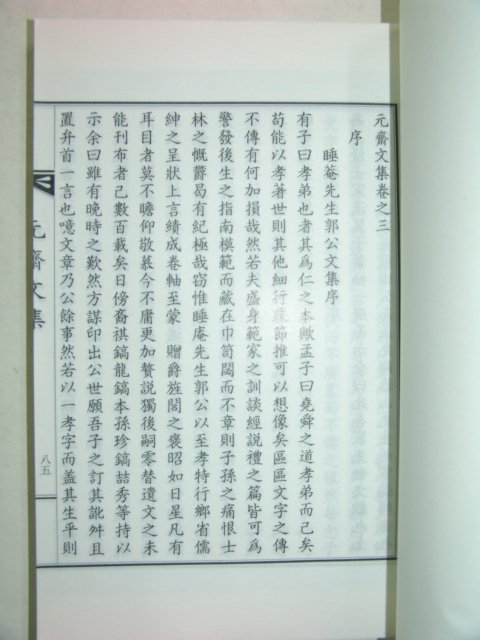 元齋文集卷之三
序
睡菴先生郭公文集序
有子曰孝弟也者其爲仁之本歟孟子曰堯舜之道孝弟而已矣
苟能以孝著世則其他細行疎節推可以想像矣區區文字之傳
不傳有何加損哉然若夫盛身範家之訓談經說禮之篇皆可爲
警發後生之指南模範而藏在巾笥閟而不章則子孫之痛恨士
林之慨欝曷有紀極哉窃惟睡庵先生郭公以至孝特行鄉省儒
紳之呈狀上言績成卷軸至蒙 贈爵旌閭之褒昭如日星凡有
耳目者莫不瞻仰敬慕今不庸更加贅說獨後嗣零替遺文之未
能刊布者已數百載矣日傍裔祺鎬龍鎬本孫珍鎬喆秀等持以
示余曰雖有晚時之歎然方謀印出公世願吾子之訂其訛舛且
置弁首一言也噫文章乃公餘事然若以一孝字而盖其生平則
元齋文集
八五